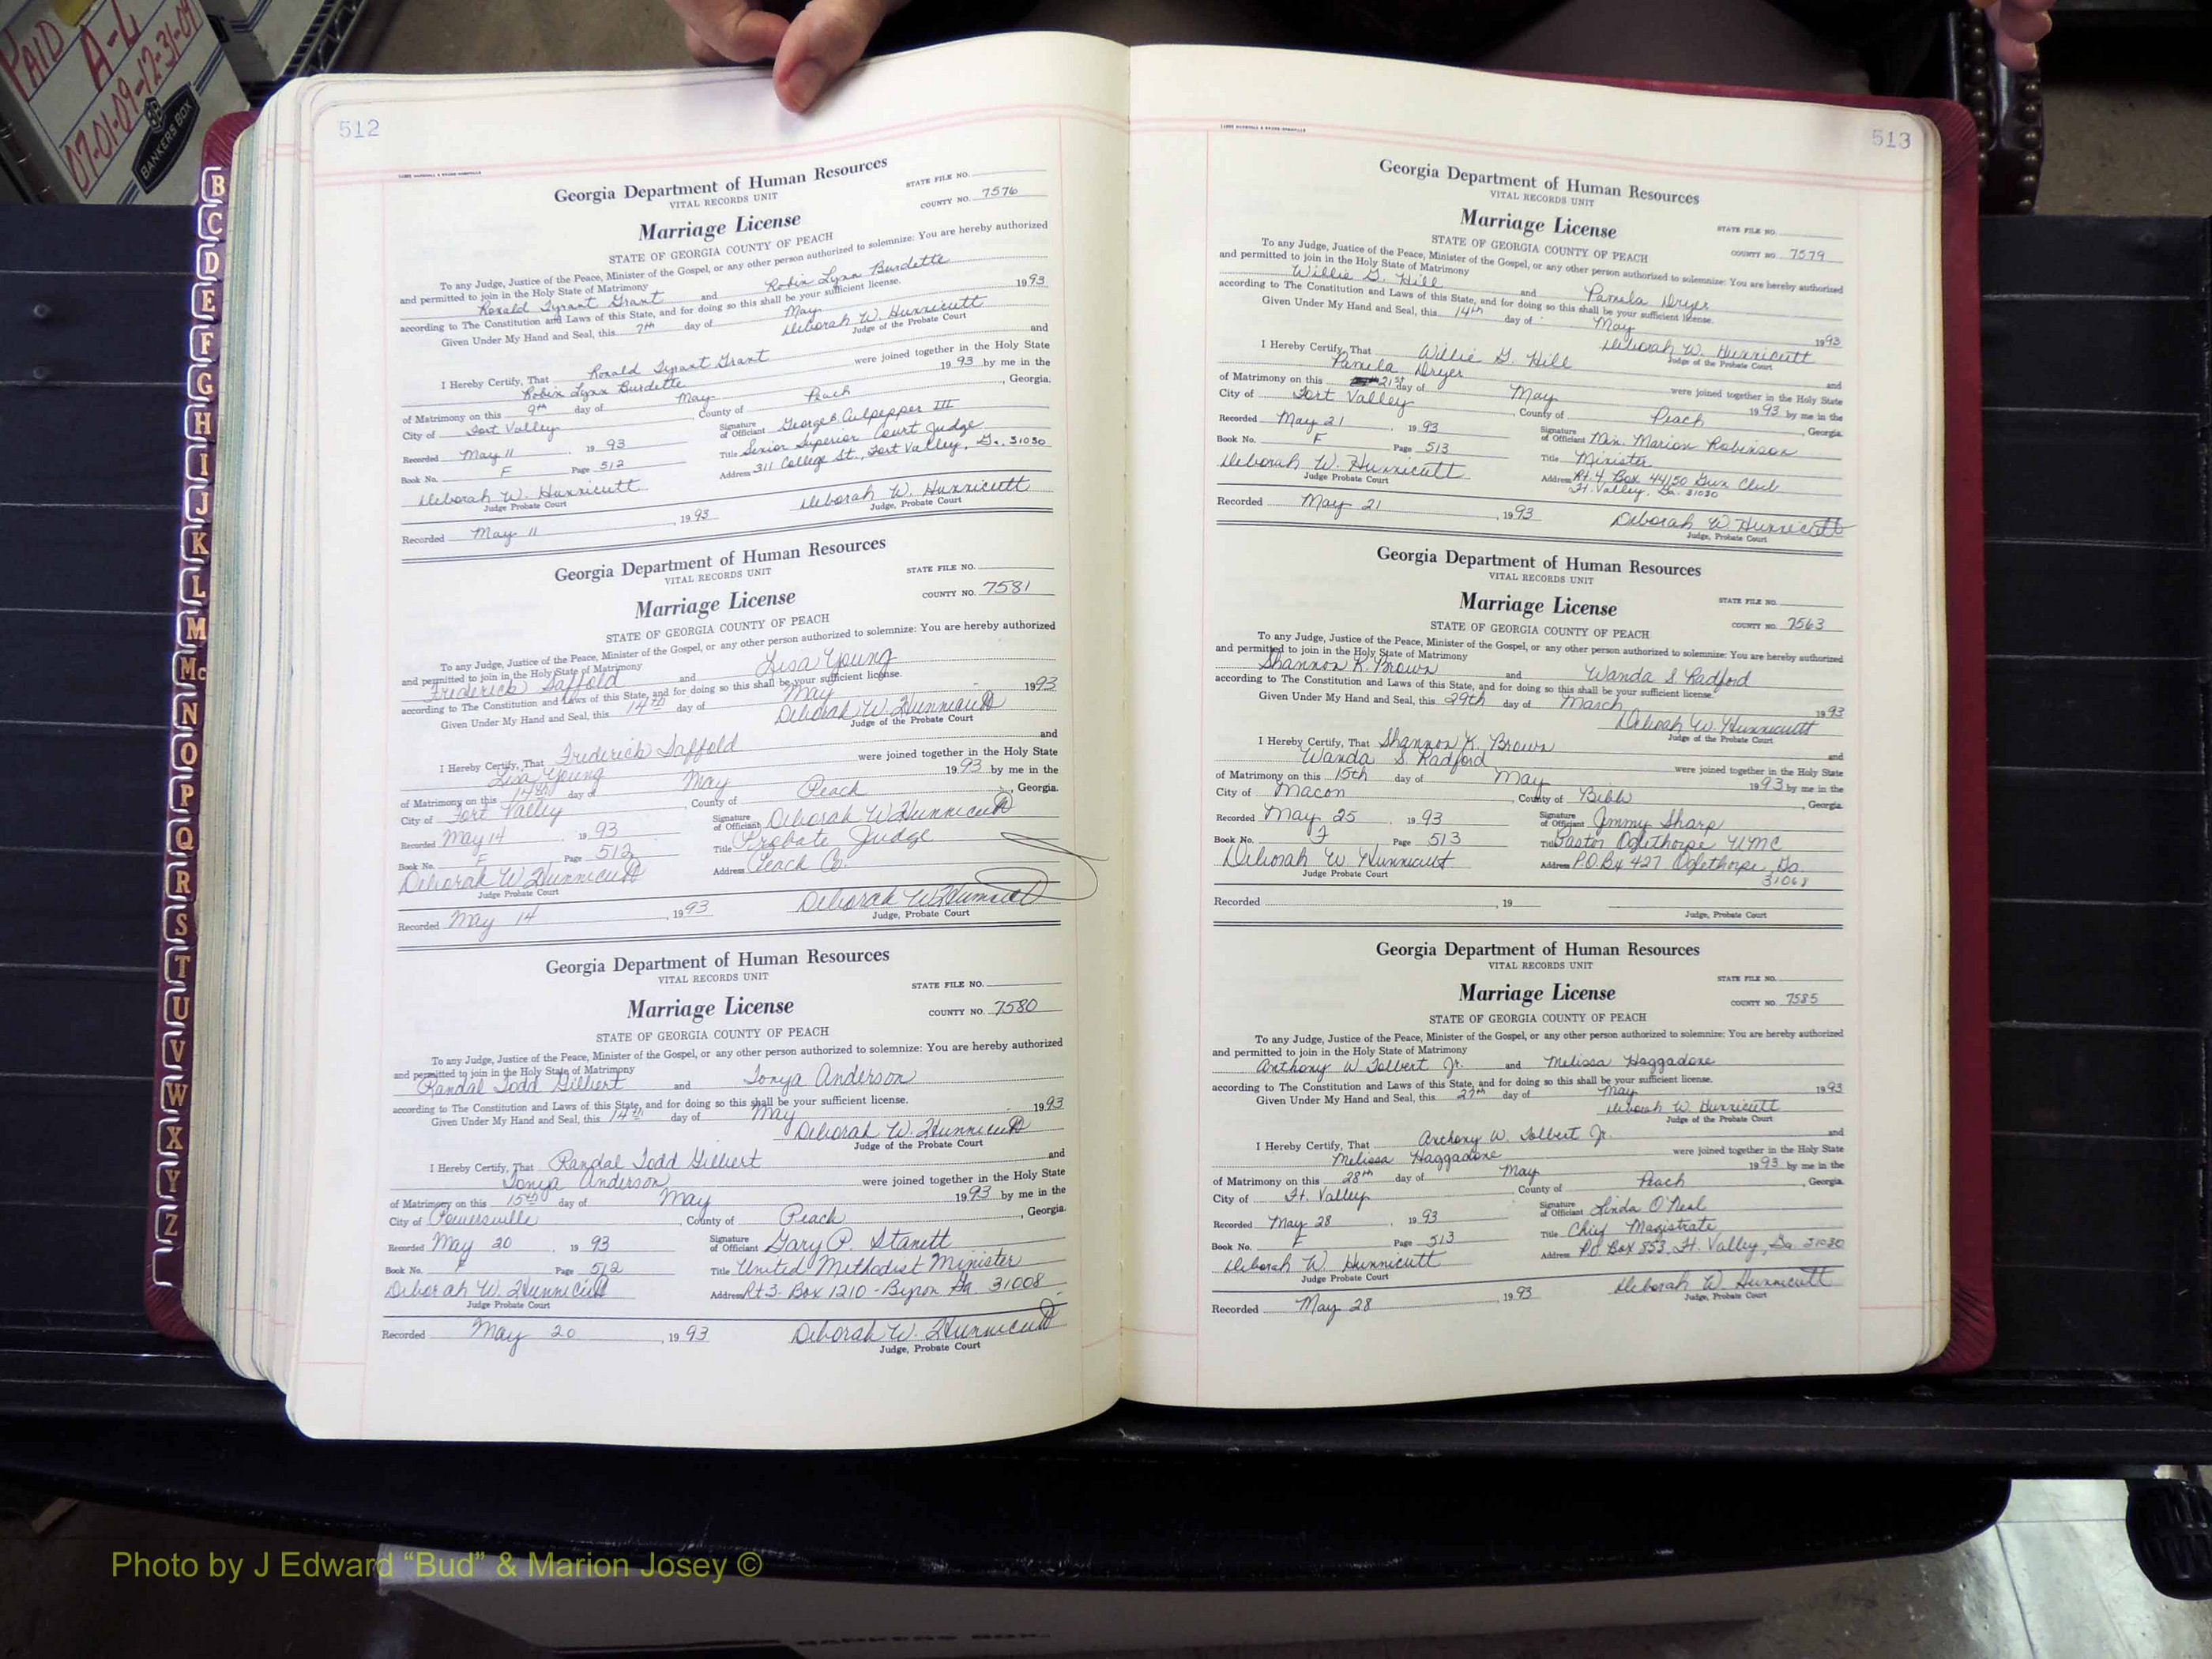 PAID
A-L
07-01-09-12-31-09
BANKERS BOX
B
C
D
E
F
G
H
I
J
K
L
M
Mc
N
O
P
Q
R
S
T
U
V
W
X
Y
Z
512
Georgia Department of Human Resources
VITAL RECORDS UNIT
STATE FILE NO.
COUNTY NO. 7576
Marriage License
STATE OF GEORGIA COUNTY OF PEACH
To any Judge, Justice of the Peace, Minister of the Gospel, or any other person authorized to solemnize: You are hereby authorized
and permitted to join in the Holy State of Matrimony
Ronald Tyrant Grant and Robin Lynn Burdette
according to The Constitution and Laws of this State, and for doing so this shall be your sufficient license.
Given Under My Hand and Seal, this 7th day of May 1993
Deborah W. Hunnicutt
Judge of the Probate Court
I Hereby Certify, That Ronald Tyrant Grant and
Robin Lynn Burdette were joined together in the Holy State
of Matrimony on this 9th day of May 1993 by me in the
City of Fort Valley, County of Peach, Georgia.
Recorded May 11 1993 Signature of Officiant George B Culpepper III
Book No. F Page 512 Title Senior Superior Court Judge
Address 311 College St., Fort Valley, Ga. 31030
Deborah W. Hunnicutt
Judge Probate Court
Recorded May 11, 1993 Deborah W. Hunnicutt
Judge, Probate Court
Georgia Department of Human Resources
VITAL RECORDS UNIT
STATE FILE NO.
COUNTY NO. 7581
Marriage License
STATE OF GEORGIA COUNTY OF PEACH
To any Judge, Justice of the Peace, Minister of the Gospel, or any other person authorized to solemnize: You are hereby authorized
and permitted to join in the Holy State of Matrimony
Frederick Saffold and Lisa Young
according to The Constitution and Laws of this State, and for doing so this shall be your sufficient license.
Given Under My Hand and Seal, this 14th day of May 1993
Deborah W. Hunnicutt
Judge of the Probate Court
I Hereby Certify, That Frederick Saffold and
Lisa Young were joined together in the Holy State
of Matrimony on this 14th day of May 1993 by me in the
City of Fort Valley, County of Peach, Georgia.
Recorded May 14 1993 Signature of Officiant Deborah W Hunnicutt
Book No. F Page 512 Title Probate Judge
Address Peach Co.
Deborah W Hunnicutt
Judge Probate Court
Recorded May 14, 1993 Deborah W Hunnicutt
Judge, Probate Court
Georgia Department of Human Resources
VITAL RECORDS UNIT
STATE FILE NO.
COUNTY NO. 7580
Marriage License
STATE OF GEORGIA COUNTY OF PEACH
To any Judge, Justice of the Peace, Minister of the Gospel, or any other person authorized to solemnize: You are hereby authorized
and permitted to join in the Holy State of Matrimony
Randal Todd Gilbert and Tonya Anderson
according to The Constitution and Laws of this State, and for doing so this shall be your sufficient license.
Given Under My Hand and Seal, this 14th day of May 1993
Deborah W. Hunnicutt
Judge of the Probate Court
I Hereby Certify, That Randal Todd Gilbert and
Tonya Anderson were joined together in the Holy State
of Matrimony on this 15th day of May 1993 by me in the
City of Powersville, County of Peach, Georgia.
Recorded May 20 1993 Signature of Officiant Gary P.
Book No. F Page 512 Title United Methodist Minister
Address Rt 3 - Box 1210 - Byron Ga 31008
Deborah W. Hunnicutt
Judge Probate Court
Recorded May 20, 1993 Deborah W. Hunnicutt
Judge, Probate Court
513
Georgia Department of Human Resources
VITAL RECORDS UNIT
Marriage License
STATE FILE NO.
STATE OF GEORGIA COUNTY OF PEACH
COUNTY NO. 7579
To any Judge, Justice of the Peace, Minister of the Gospel, or any other person authorized to solemnize: You are hereby authorized
and permitted to join in the Holy State of Matrimony
Willie G. Hill and Pamela Dryer
according to The Constitution and Laws of this State, and for doing so this shall be your sufficient license.
Given Under My Hand and Seal, this 14th day of May 1993
Deborah W. Hunnicutt
Judge of the Probate Court
I Hereby Certify, That Willie G. Hill and
Pamela Dryer were joined together in the Holy State
of Matrimony on this 21st day of May 1993 by me in the
City of Fort Valley, County of Peach, Georgia.
Recorded May 21, 1993 Signature of Officiant Min. Marion Robinson
Book No. F Page 513 Title Minister
Address Rt. 4, Box 44150 Gun Club
Ft. Valley, Ga. 31030
Deborah W. Hunnicutt
Judge Probate Court
Recorded May 21, 1993 Deborah W. Hunnicutt
Judge, Probate Court
Georgia Department of Human Resources
VITAL RECORDS UNIT
Marriage License
STATE FILE NO.
STATE OF GEORGIA COUNTY OF PEACH
COUNTY NO. 7563
To any Judge, Justice of the Peace, Minister of the Gospel, or any other person authorized to solemnize: You are hereby authorized
and permitted to join in the Holy State of Matrimony
Shannon K. Brown and Wanda S Radford
according to The Constitution and Laws of this State, and for doing so this shall be your sufficient license.
Given Under My Hand and Seal, this 29th day of March 1993
Deborah W. Hunnicutt
Judge of the Probate Court
I Hereby Certify, That Shannon K. Brown and
Wanda S. Radford were joined together in the Holy State
of Matrimony on this 15th day of May 1993 by me in the
City of Macon, County of Bibb, Georgia.
Recorded May 25, 1993 Signature of Officiant Jimmy Sharp
Book No. F Page 513 Title Pastor Oglethorpe UMC
Deborah W Hunnicutt Address P.O. Bx 427 Oglethorpe, Ga.
31068
Judge Probate Court
Recorded , 19
Judge, Probate Court
Georgia Department of Human Resources
VITAL RECORDS UNIT
STATE FILE NO.
Marriage License
COUNTY NO. 7585
STATE OF GEORGIA COUNTY OF PEACH
To any Judge, Justice of the Peace, Minister of the Gospel, or any other person authorized to solemnize: You are hereby authorized
and permitted to join in the Holy State of Matrimony
Anthony W Tolbert Jr. and Melissa Haggadone
according to The Constitution and Laws of this State, and for doing so this shall be your sufficient license.
Given Under My Hand and Seal, this 27th day of May 1993
Deborah W. Hunnicutt
Judge of the Probate Court
I Hereby Certify, That Anthony W. Tolbert Jr. and
Melissa Haggadone were joined together in the Holy State
of Matrimony on this 28th day of May 1993 by me in the
City of Ft. Valley, County of Peach, Georgia.
Recorded May 28, 1993 Signature of Officiant Linda O'Neal
Book No. F Page 513 Title Chief Magistrate
Address P.O. Box 853, Ft. Valley, Ga 31030
Deborah W. Hunnicutt
Judge Probate Court
Recorded May 28, 1993 Deborah W. Hunnicutt
Judge, Probate Court
Photo by J Edward “Bud” & Marion Josey ©